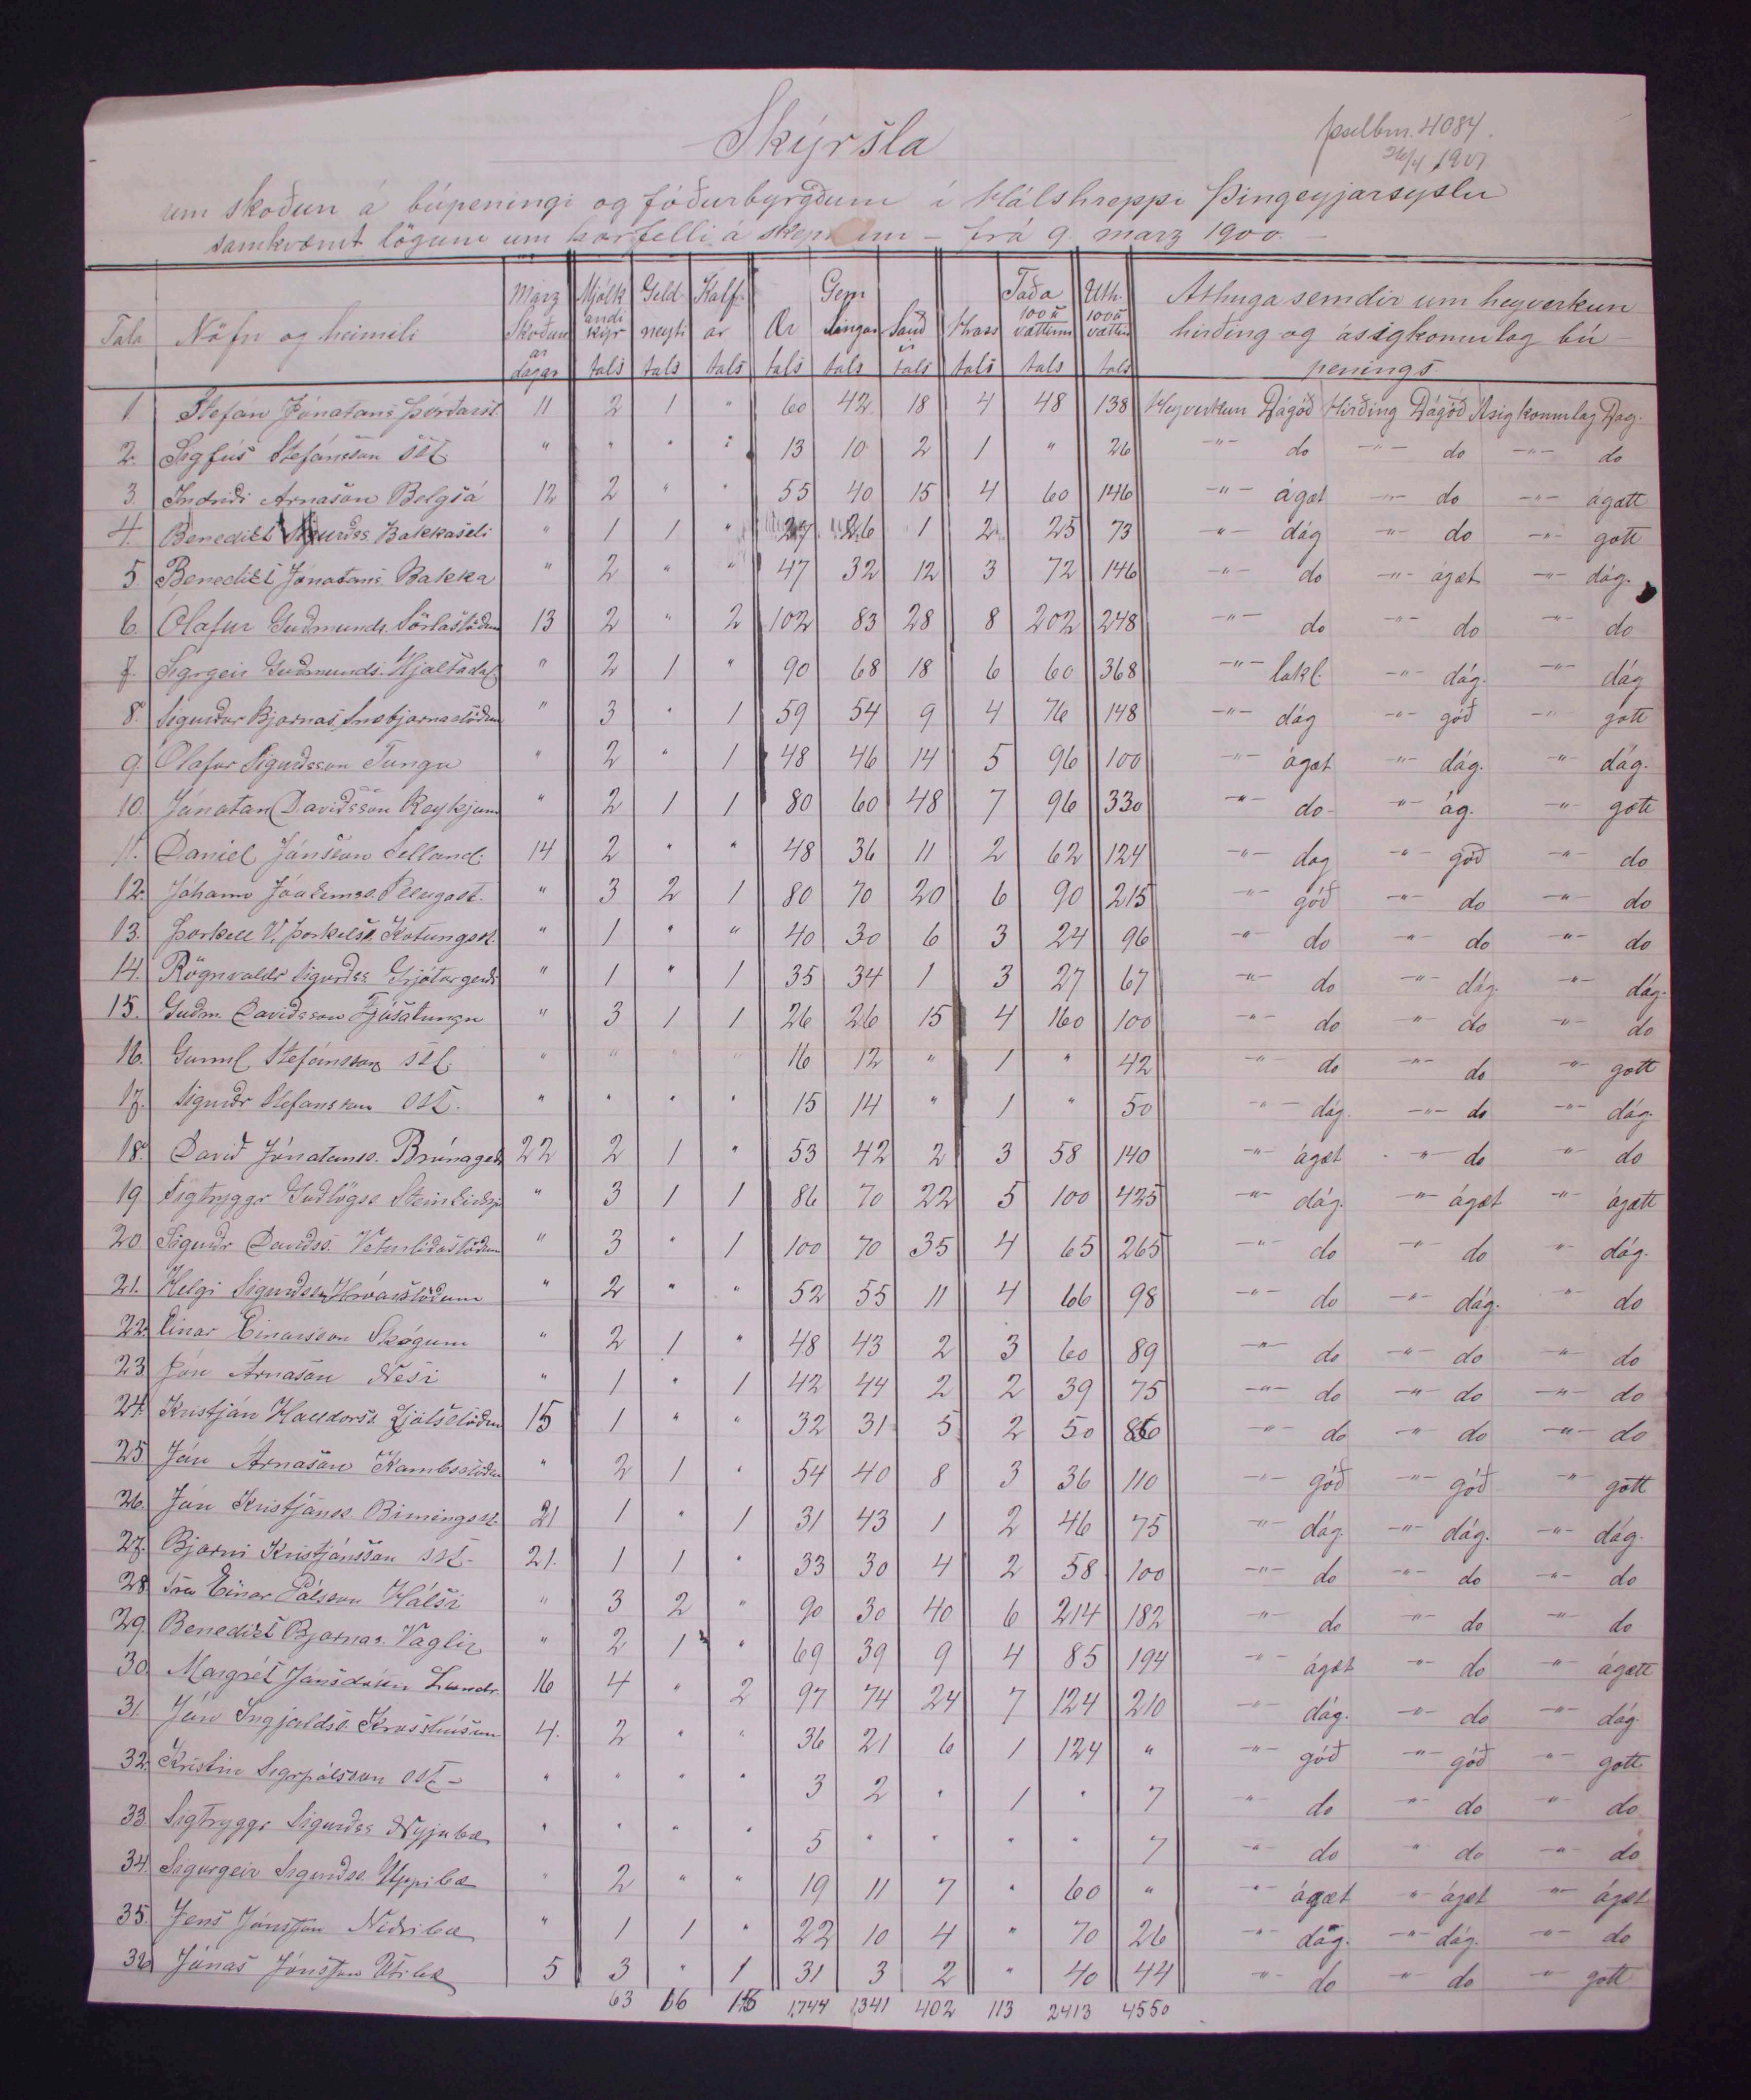 Skýrsla
26/4 1901
um skoðun á búpeningi og fóðurbyrgðum í Hálshreppi Þingeyjarsyslu
samkvæmt lögum um horfelli á skepnum - frá 9. marz 1900. -
Tala | Nöfn og heimeli | Marz Skoðunar dagar | Mjólkandi kýr tals | Geldneyti tals | Kalfar tals | Ær tals | Gemlingar tals | Sauðir tals | Hross tals | Taða 100 ü vættum tals | Úth. 100 ü vættum tals | Athugasemdir um heyverkun hirðing og ásigkomulag búpenings
1. Stefán Jónatans Þórðarst. 11 2 1 " 60 42 18 4 48 138 Heyverkun Dágóð Hirðing Dágóð Ásigkomulag Dag.
2. Sigfús Stefánsson sst. " " " " 13 10 2 1 " 26 -"- do -"- do -"- do
3. Indriði Arnason Belgsá 12 2 " " 55 40 15 4 60 146 -"- ágæt -"- do -"- ágætt
4. Benedikt Sigurðss. Bakkaseli " 1 1 " 27 26 1 2 25 73 -"- dág -"- do -"- gott
5. Benedikt Jónatans Bakka " 2 " " 47 32 12 3 72 146 -"- do -"- ágæt -"- dág.
6. Ólafur Guðmunds. Sörlastöðum 13 2 " 2 102 83 28 8 202 248 -"- do -"- do -"- do
7. Sigrgeir Guðmunds. Hjaltadal " 2 1 " 90 68 18 6 60 368 -"- lakl. -"- dág. -"- dág
8. Sigurður Bjarnas. Snæbjarnastöðum " 3 " 1 59 54 9 4 76 148 -"- dág -"- góð -"- gott
9 Ólafur Sigurðsson Tungu " 2 " 1 48 46 14 5 96 100 -"- ágæt -"- dág. -"- dág.
10. Jónatan Davíðsson Reykjum " 2 1 1 80 60 48 7 96 330 -"- do -"- ág. -"- gott
11. Daniel Jónsson Selland. 14 2 " " 48 36 11 2 62 124 -"- dag -"- góð -"- do
12. Jóhann " 3 2 1 80 70 20 6 90 215 -"- góð -"- do -"- do
13. Þorkell V. Þorkelss. Kotungsst. " 1 " " 40 30 6 3 24 96 -"- do -"- do -"- do
14. Rögnvaldr Sigurðss Grjótargerði " 1 " 1 35 34 1 3 27 67 -"- do -"- dág. -"- dág.
15. Guðm. Davidsson Fjósatungu " 3 1 1 26 26 15 4 160 100 -"- do -"- do -"- do
16. Gunnl Stefánsson sst. " " " " 16 12 " 1 " 42 -"- do -"- do -"- gott
17. Sigurðr Stefansson sst. " " " " 15 14 " 1 " 50 -"- dág. -"- do -"- dág.
18. Davið Jónatanss. Brúnagerði 22 2 1 " 53 42 2 3 58 140 -"- ágæt -"- do -"- do
19 Sigtryggr Guðlögss. Steinkirkju " 3 1 1 86 70 22 5 100 425 -"- dág. -"- ágæt -"- ágætt
20 Sigurðr Davíðss. Veturliðastöðum " 3 " 1 100 70 35 4 65 265 -"- do -"- do -"- dág.
21. Helgi Sigurðss. Hróarsstöðum " 2 " " 52 55 11 4 66 98 -"- do -"- dág. -"- do
22. Einar Einarsson Skógum " 2 1 " 48 43 2 3 60 89 -"- do -"- do -"- do
23. Jón Árnason Nesi " 1 " 1 42 44 2 2 39 75 -"- do -"- do -"- do
24. Kristján Halldorss. Ljótsstöðum 15 1 " " 32 31 5 2 50 86 -"- do -"- do -"- do
25. Jón Árnason Kambsstöðum " 2 1 " 54 40 8 3 36 110 -"- góð -"- góð -"- gott
26. Jón Kristjánss. Birningsst. 21 1 " 1 31 43 1 2 46 75 -"- dág. -"- dág. -"- dág.
27. Bjarni Kristjánsson sst. 21. 1 1 " 33 30 4 2 58 100 -"- do -"- do -"- do
28. Sra Einar Pálsson Hálsi " 3 2 " 90 30 40 6 214 182 -"- do -"- do -"- do
29. Benedikt Bjarnas. Vaglir " 2 1 " 69 39 9 4 85 194 -"- ágæt -"- do -"- ágætt
30. Margrét Jónsdóttir Lundr. 16 4 " 2 97 74 24 7 124 210 -"- dág. -"- do -"- dág
31. Jón Ingjaldss. Krosshúsum 4. 2 " " 36 21 6 1 124 " -"- góð -"- góð -"- gott
32. Kristin Sigrpálsson sst. " " " " 3 2 " 1 " 7 -"- do -"- do -"- do
33. Sigtryggr Sigurðss Nyjabæ " " " " 5 " " " " 7 -"- do " do -"- do
34. Sigurgeir Sigurðss. Uppibæ " 2 " " 19 11 7 " 60 " -"- ágæt -"- ágæt -"- ágæt
35. Jens Jónsson Niðribæ " 1 1 " 22 10 4 " 70 26 -"- dág. -"- dág. -"- do
36 Jónas Jónsson Útibæ 5 3 " 1 31 3 2 " 40 44 -"- do -"- do -"- gott
63 16 1744 1341 402 113 2413 4550